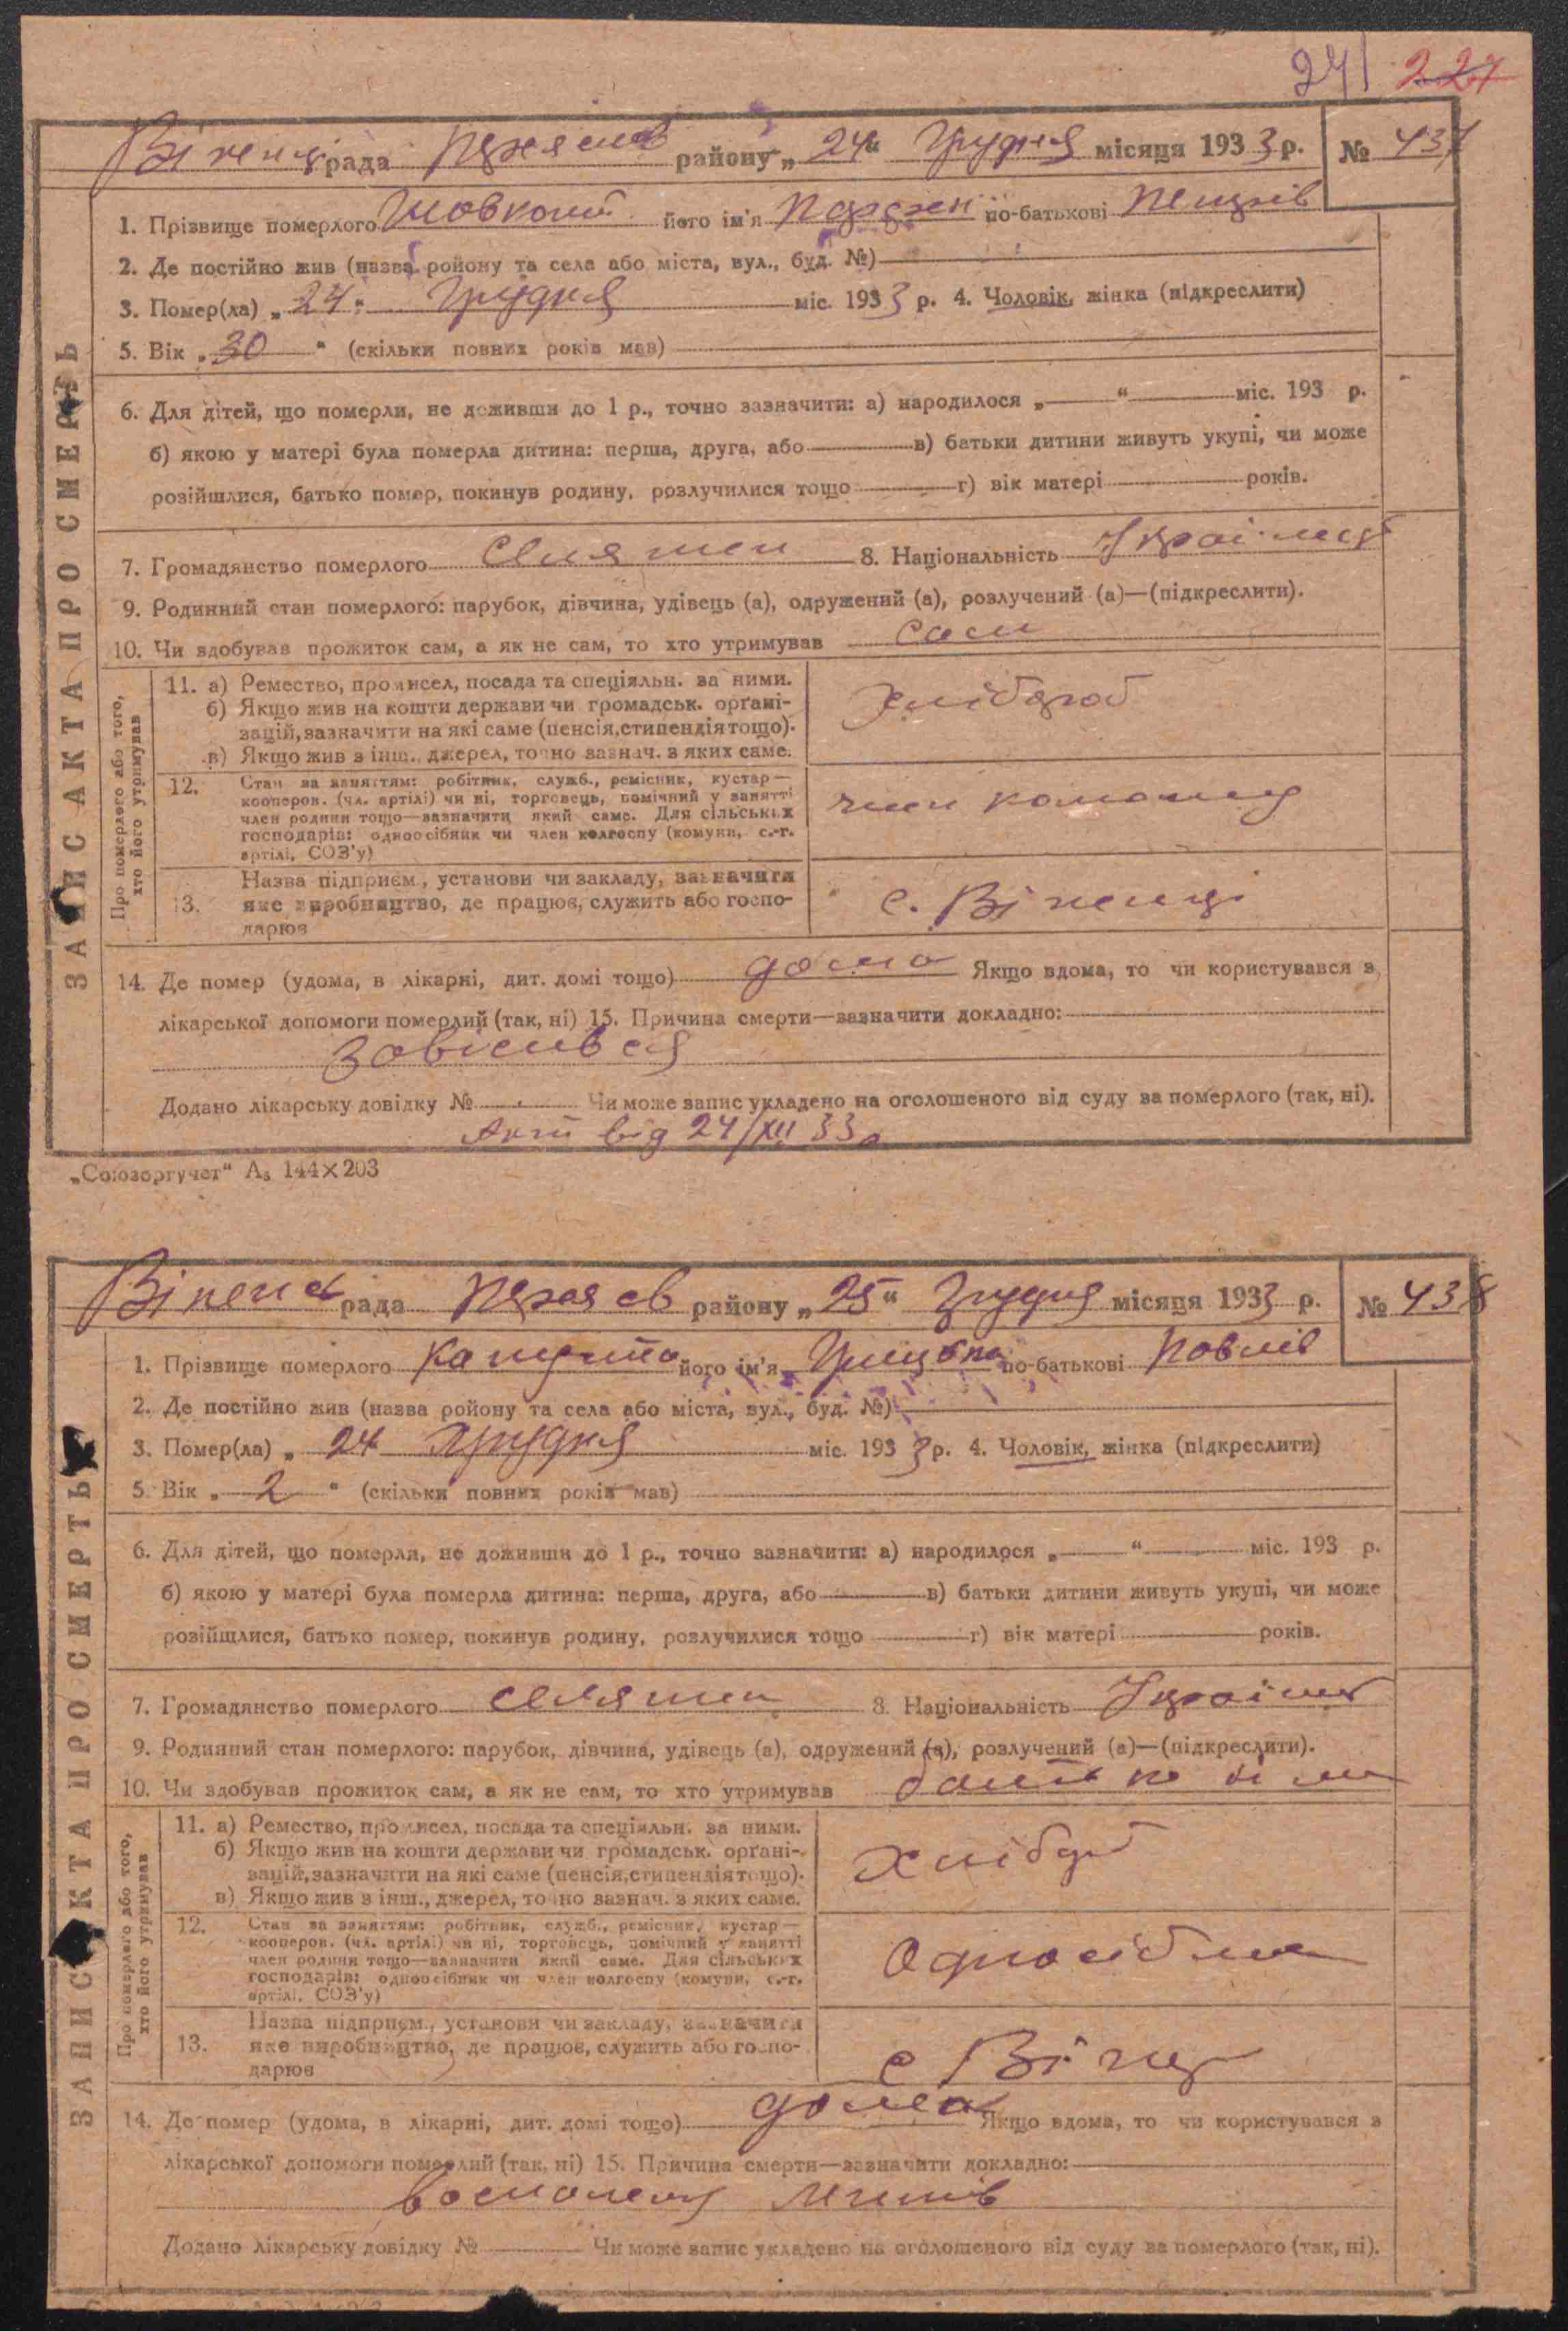 241 227
рада району „ 24 “ Грудня місяця 1933 р. № 437
1. Прізвище померлого Шовкопл його ім'я по-батькові
2. Де постійно жив (назва ройону та села або міста, вул., буд. №)
3. Помер(ла) „ 24 “ Грудня міс. 1933 р. 4. Чоловік, жінка (підкреслити)
5. Вік „ 30 “ (скільки повних років мав)
6. Для дітей, що померли, не доживши до 1 р., точно зазначити: а) народилося „ “ міс. 193 р.
б) якою у матері була померла дитина: перша, друга, або в) батьки дитини живуть укупі, чи може
розійшлися, батько помер, покинув родину, розлучилися тощо г) вік матері років.
7. Громадянство померлого селянин 8. Національність Україінец
9. Родинний стан померлого: парубок, дівчина, удівець (а), одружений (а), розлучений (а)—(підкреслити).
10. Чи здобував прожиток сам, а як не сам, то хто утримував сам
ЗАПИС АКТА ПРО СМЕРТЬ
Про померлого або того,
хто його утримував
11. а) Ремество, промисел, посада та спеціяльн. за ними.
б) Якщо жив на кошти держави чи громадськ. орґані-
зацій, зазначити на які саме (пенсія, стипендія тощо).
в) Якщо жив з інш., джерел, точно зазнач. з яких саме.
Хлібороб
12. Стан за заняттям: робітник, служб., ремісник, кустар—
кооперов. (чл. артілі) чи ні, торговець, помічний у занятті
член родини тощо—зазначити який саме. Для сільських
господарів: одноосібник чи член колгоспу (комуни, с.-г.
артілі, СОЗ'у)
член
13. Назва підприєм., установи чи закладу, зазначити
яке виробництво, де працює, служить або госпо-
дарює
с. Віненці
14. Де помер (удома, в лікарні, дит. домі тощо) дома Якщо вдома, то чи користувався з
лікарської допомоги померлий (так, ні) 15. Причина смерти—зазначити докладно:
Додано лікарську довідку № Чи може запис укладено на оголошеного від суду за померлого (так, ні).
Акт від 24/XII 33 р
„Союзоргучет“ А₅ 144×203
рада району „ 25 “ Грудня місяця 1933 р. № 438
1. Прізвище померлого Капуста його ім'я по-батькові Повлів
2. Де постійно жив (назва ройону та села або міста, вул., буд. №)
3. Помер(ла) „ 24 Грудня міс. 1933 р. 4. Чоловік, жінка (підкреслити)
5. Вік „ 2 “ (скільки повних років мав)
6. Для дітей, що померли, не доживши до 1 р., точно зазначити: а) народилося „ “ міс. 193 р.
б) якою у матері була померла дитина: перша, друга, або в) батьки дитини живуть укупі, чи може
розійшлися, батько помер, покинув родину, розлучилися тощо г) вік матері років.
7. Громадянство померлого селянин 8. Національність
9. Родинний стан померлого: парубок, дівчина, удівець (а), одружений (а), розлучений (а)—(підкреслити).
10. Чи здобував прожиток сам, а як не сам, то хто утримував
ЗАПИС АКТА ПРО СМЕРТЬ
Про померлого або того,
хто його утримував
11. а) Ремество, промисел, посада та спеціяльн. за ними.
б) Якщо жив на кошти держави чи громадськ. орґані-
зацій, зазначити на які саме (пенсія, стипендія тощо).
в) Якщо жив з інш., джерел, точно зазнач. з яких саме.
12. Стан за заняттям: робітник, служб., ремісник, кустар—
кооперов. (чл. артілі) чи ні, торговець, помічний у занятті
член родини тощо—зазначити який саме. Для сільських
господарів: одноосібник чи член колгоспу (комуни, с.-г.
артілі, СОЗ'у)
13. Назва підприєм., установи чи закладу, зазначити
яке виробництво, де працює, служить або госпо-
дарює
14. Де помер (удома, в лікарні, дит. домі тощо) дома Якщо вдома, то чи користувався з
лікарської допомоги померлий (так, ні) 15. Причина смерти—зазначити докладно:
Додано лікарську довідку № Чи може запис укладено на оголошеного від суду за померлого (так, ні).